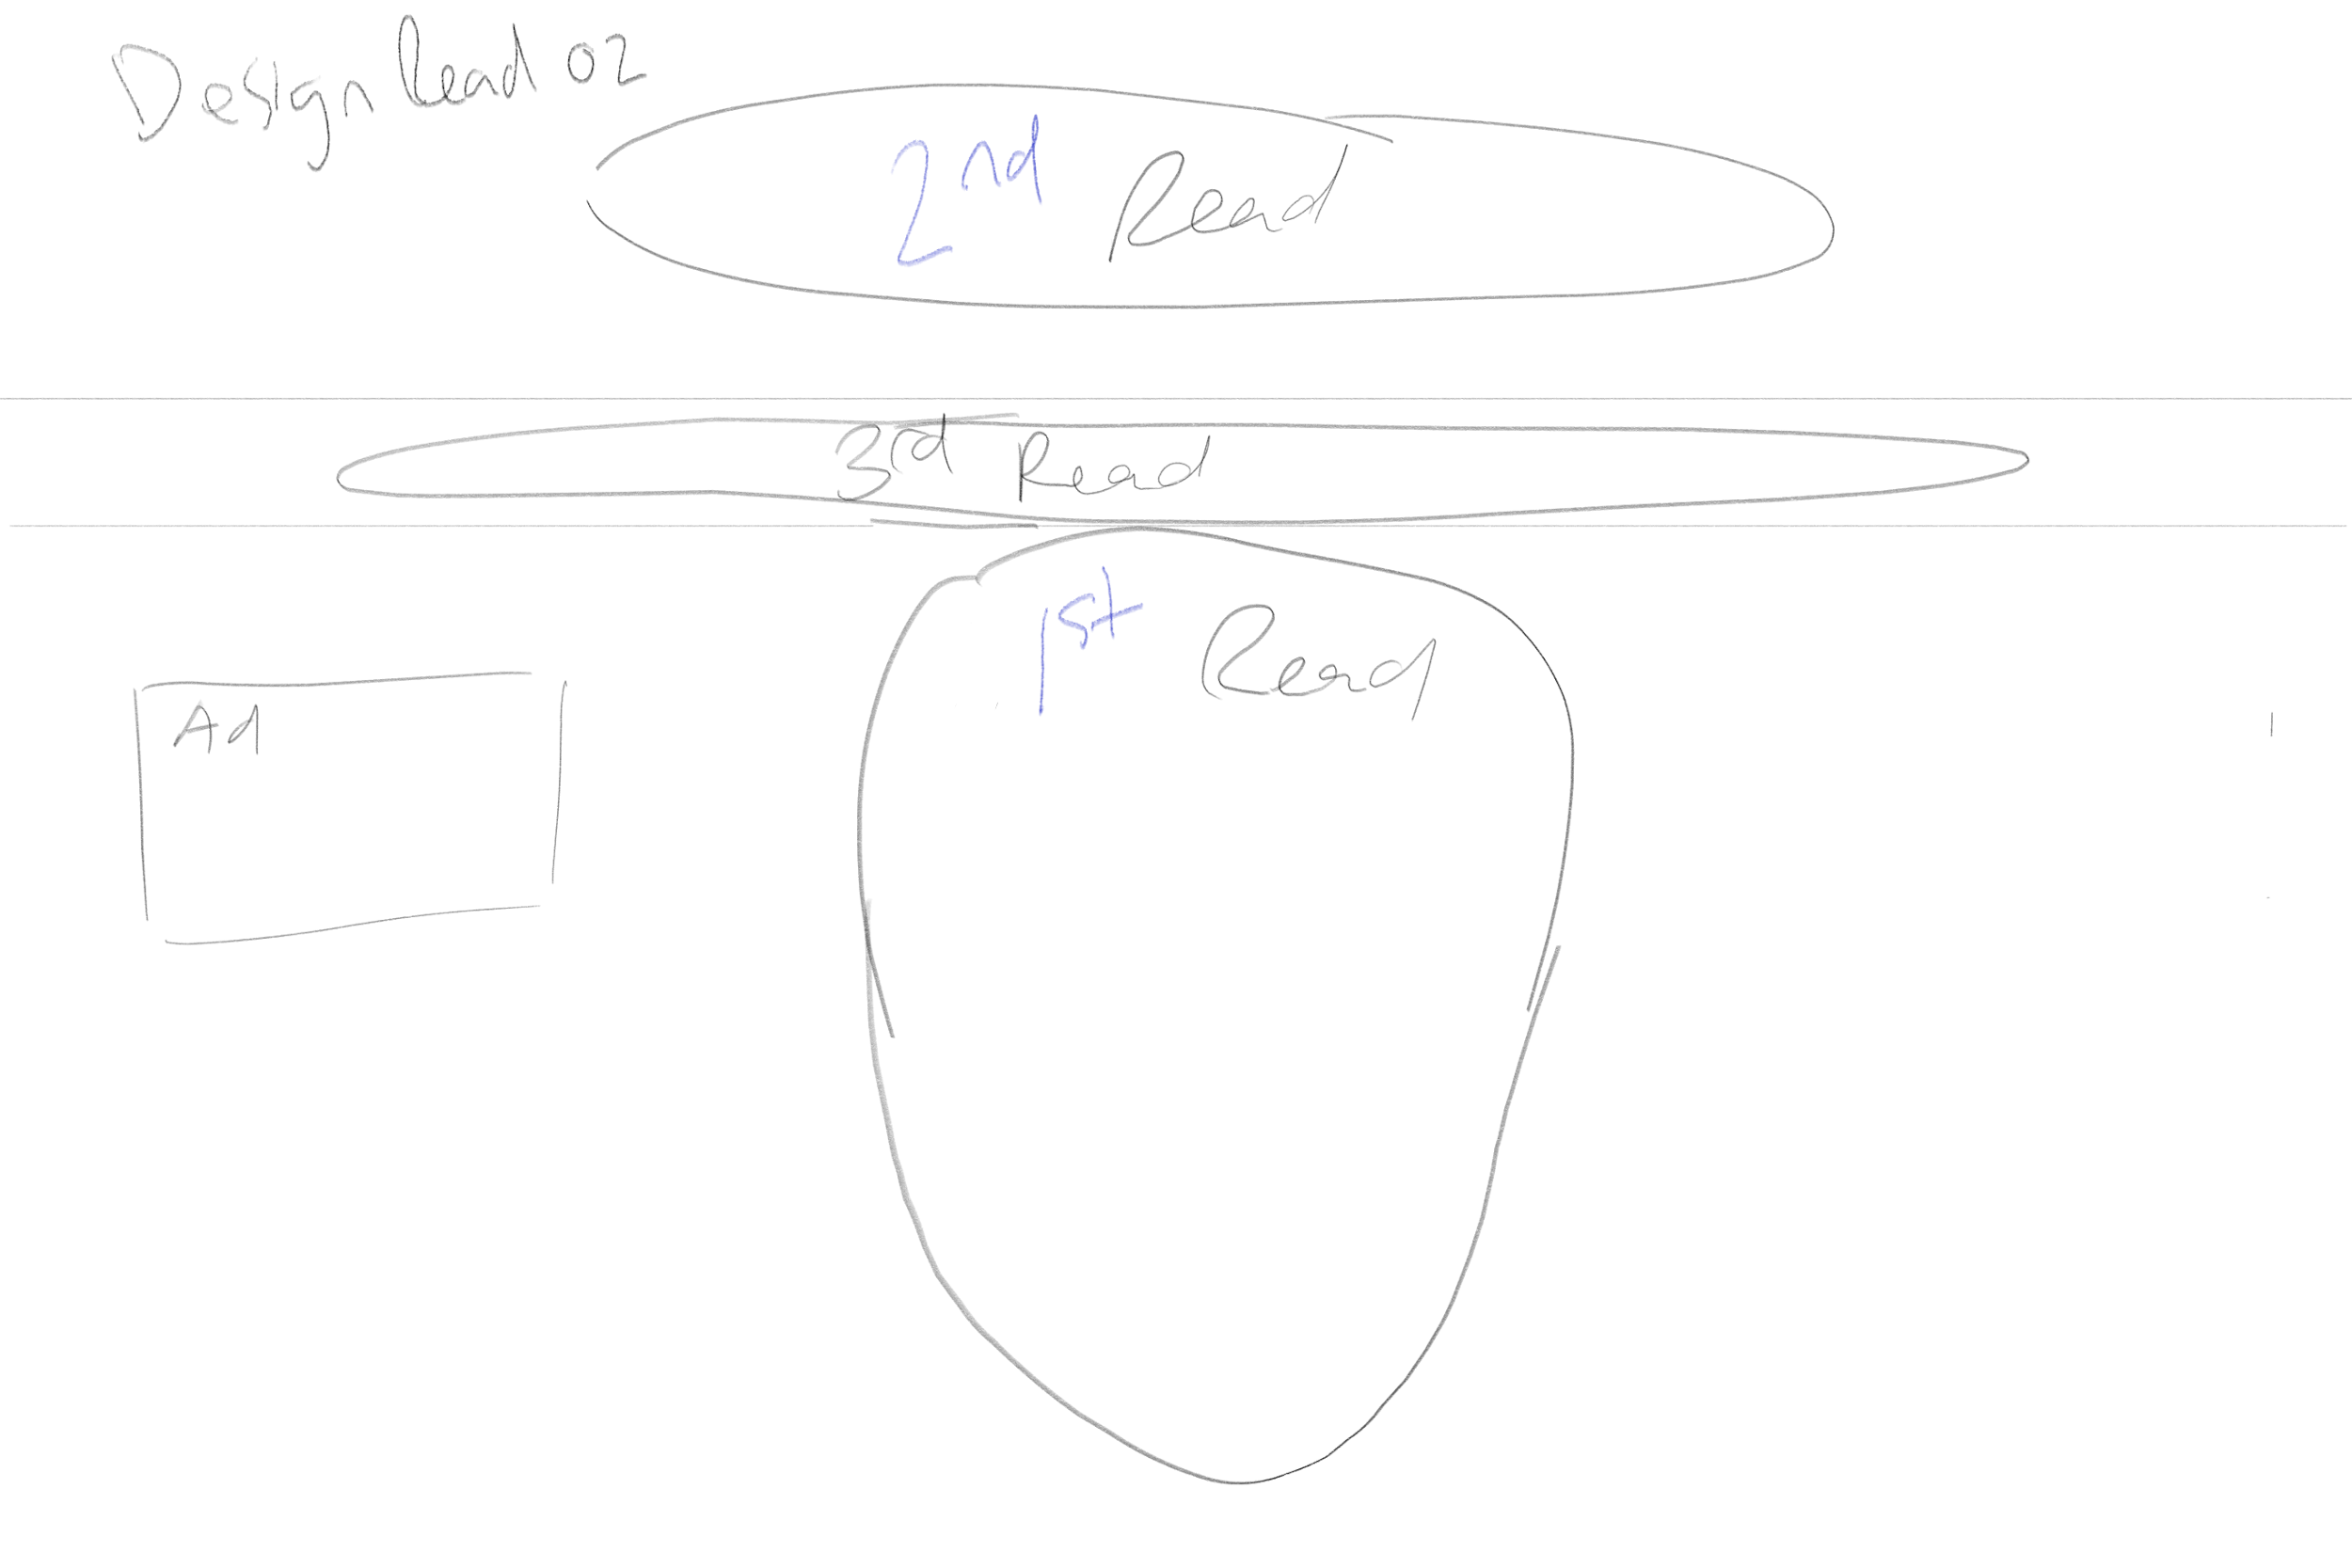 Design Read 02
2nd Read
3rd Read
1st Read
Ad